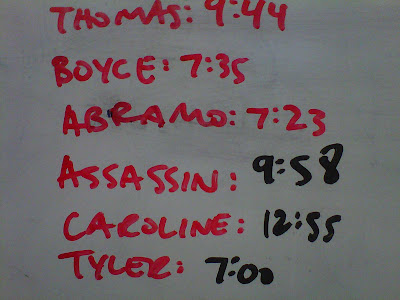 THOMAS: 9:44
BOYCE: 7:35
ABRAMO: 7:23
ASSASSIN: 9:58
CAROLINE: 12:55
TYLER: 7:00